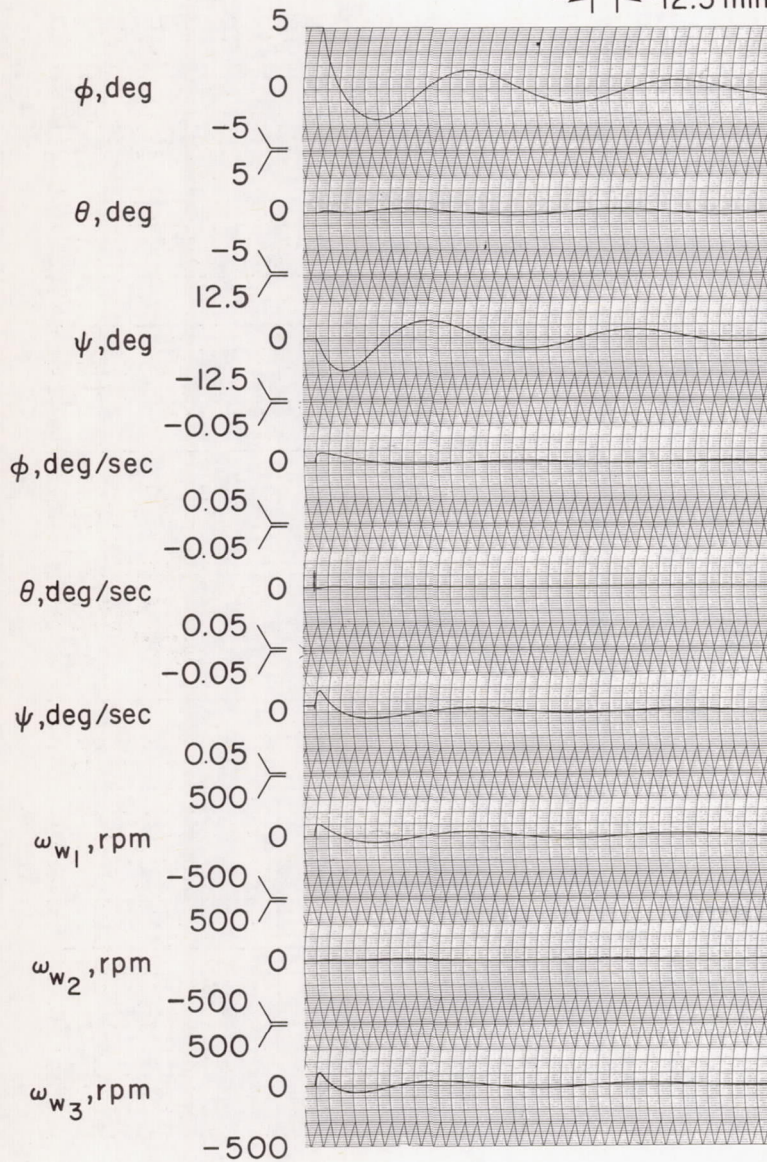 12.5 min
5
φ,deg 0
-5
5
θ,deg 0
-5
12.5
ψ,deg 0
-12.5
-0.05
φ,deg/sec 0
0.05
-0.05
θ,deg/sec 0
0.05
-0.05
ψ,deg/sec 0
0.05
500
ωw1,rpm 0
-500
500
ωw2,rpm 0
-500
500
ωw3,rpm 0
-500